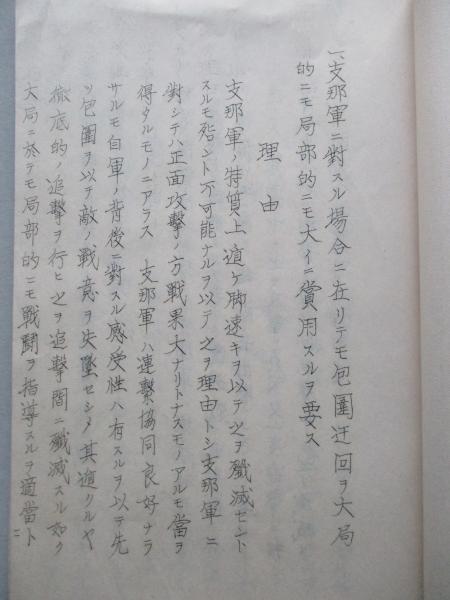 一、支那軍ニ對スル場合ニ在リテモ包圍迂回ヲ大局
的ニモ局部的ニモ大イニ賞用スルヲ要ス
理由
支那軍ノ特質上逃ケ脚速キヲ以テ之ヲ殲滅セント
スルモ殆ント不可能ナルヲ以テ之ヲ理由トシ支那軍ニ
對シテハ正面攻擊ノ方戰果大ナリトナスモノアルモ當ヲ
得タルモノニアラス 支那軍ハ連繫協同良好ナラ
サルモ自軍ノ背後ニ對スル感受性ハ有スルヲ以テ先
ツ包圍ヲ以テ敵ノ戰意ヲ失墜セシメ其逃クルヤ
徹底的ノ追擊ヲ行ヒ之ヲ追擊間ニ殲滅スル如ク
大局ニ於テモ局部的ニモ戰鬪ヲ指導スルヲ適當ト